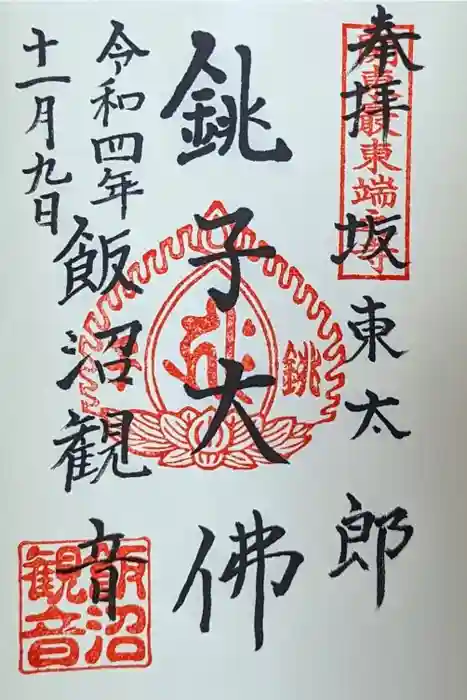 奉拝 坂東太郎
関東最東端
銚子大佛
銚
飯沼観音
令和四年
十一月九日
飯沼
観音